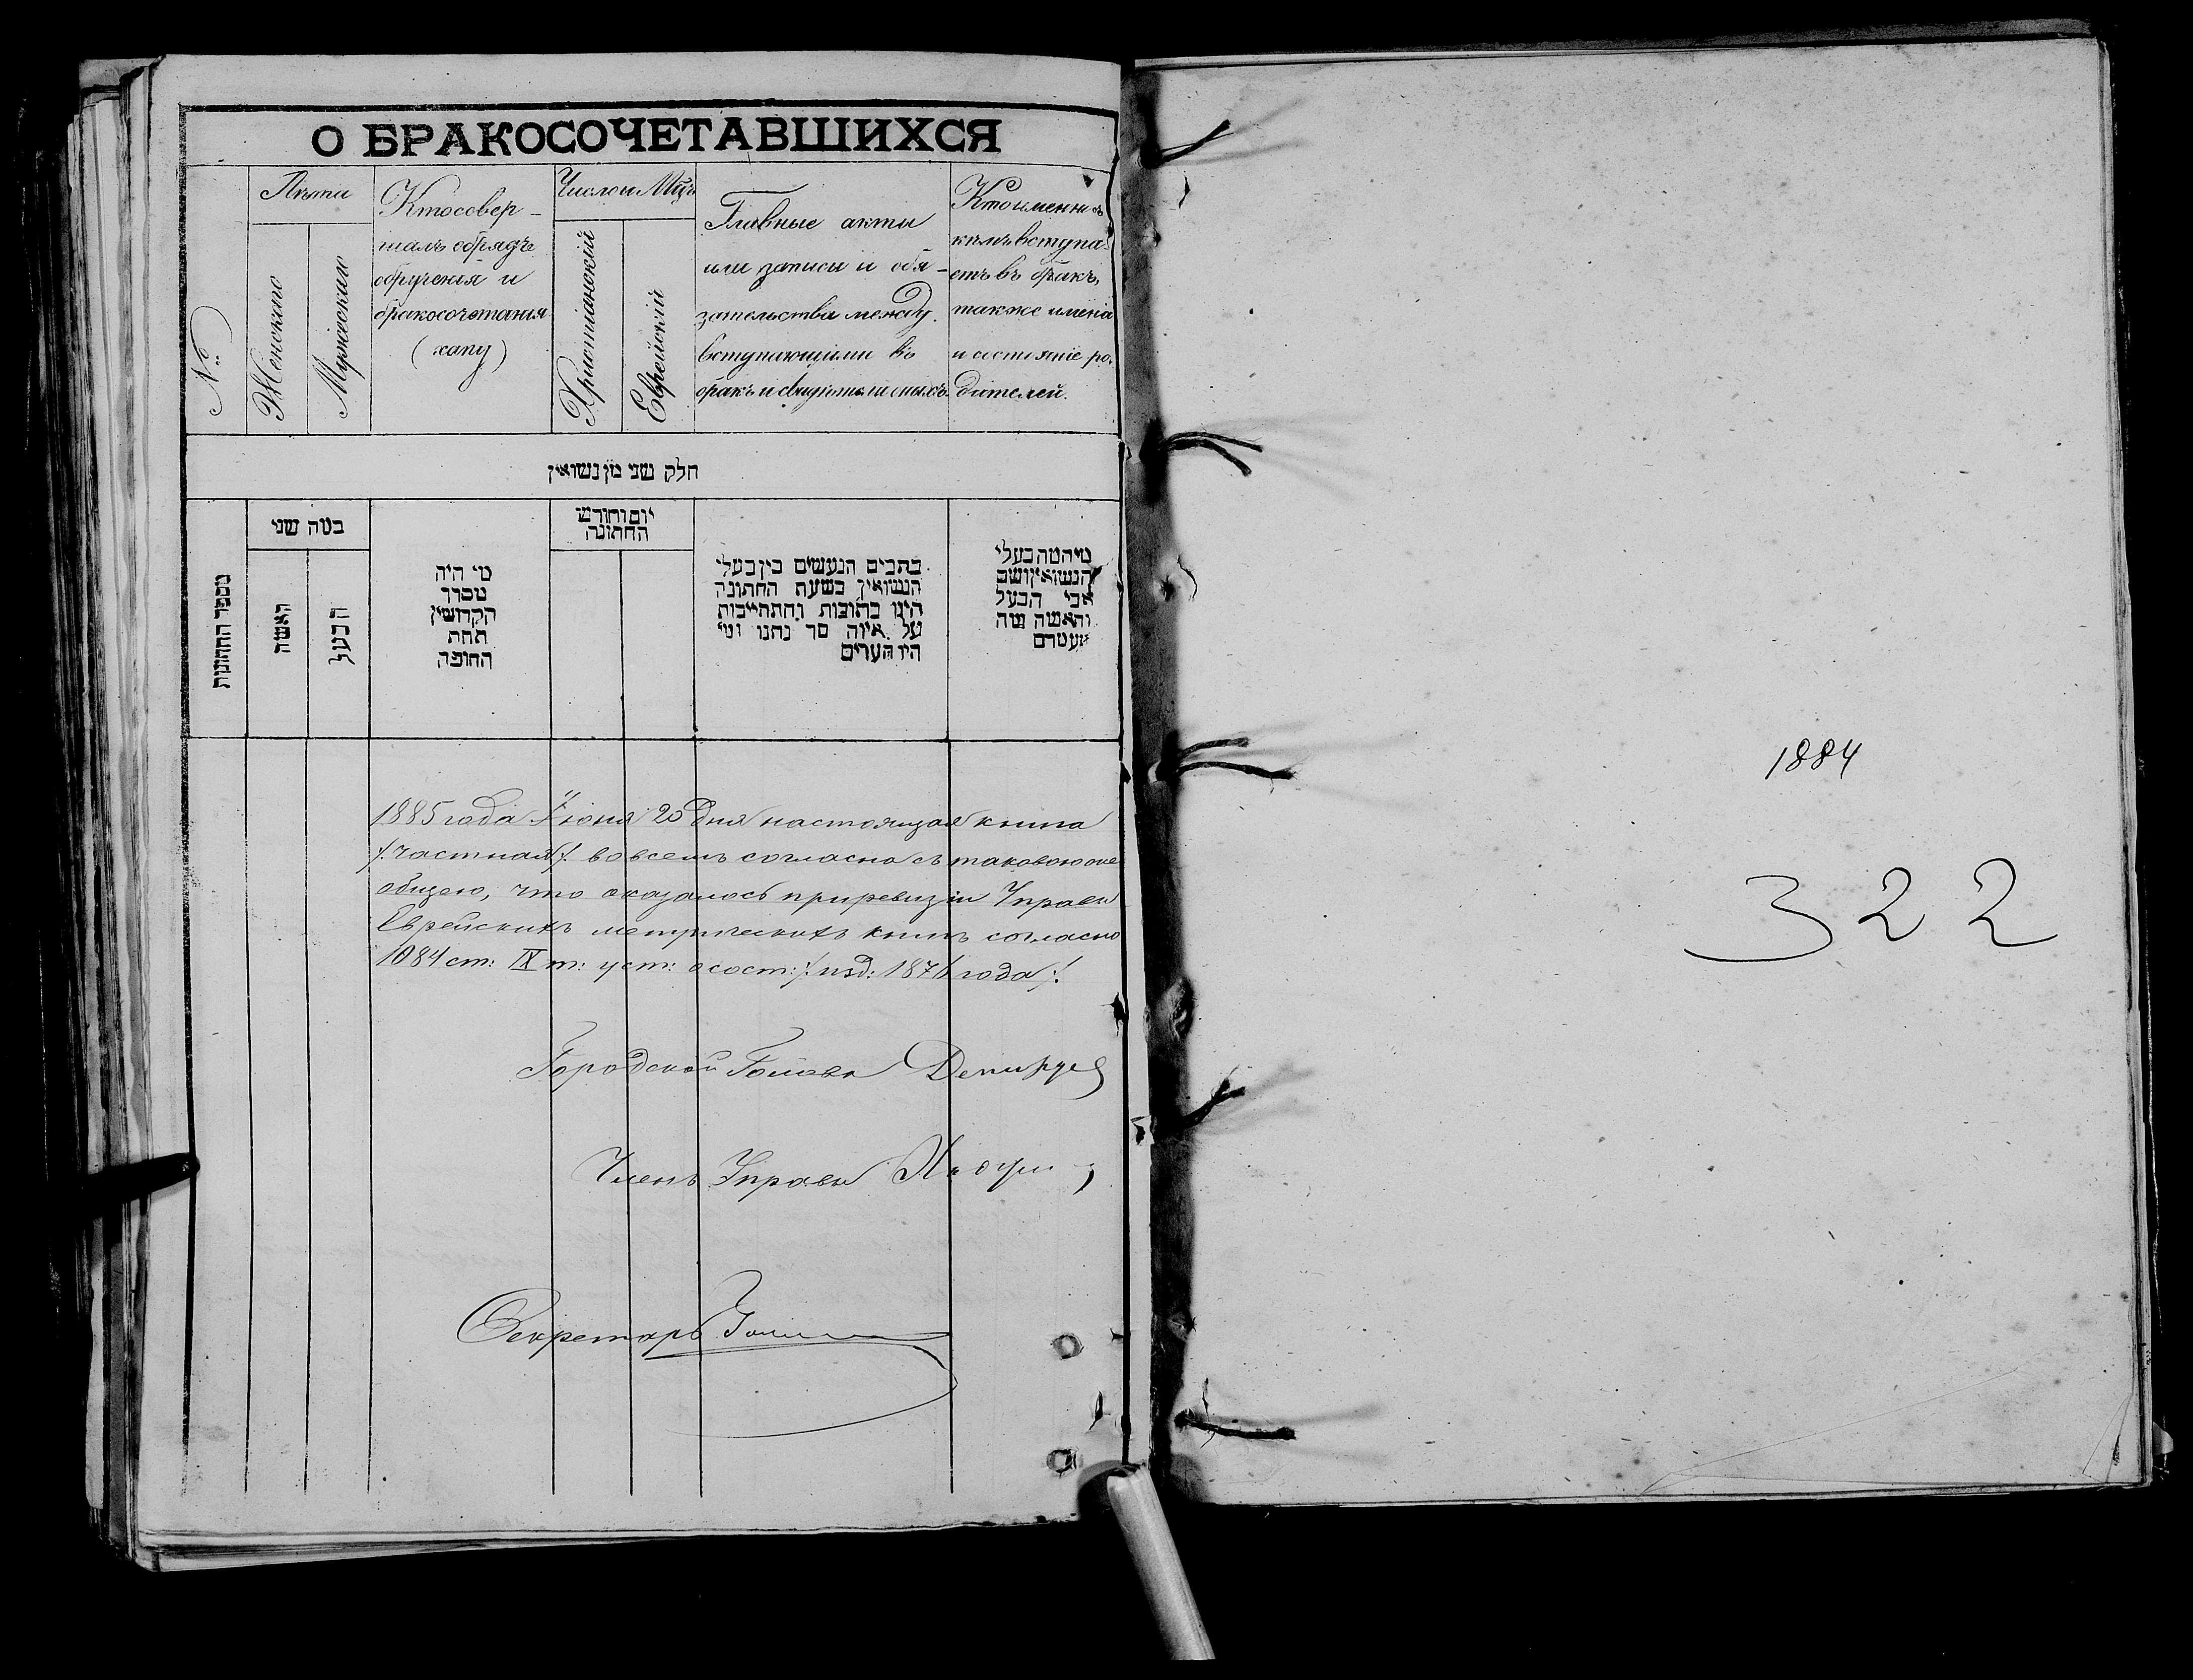 О БРАКОСОЧЕТАВШИХСЯ
№
Лѣта
Женскаго
Мужескаго
Кто совер-
шалъ обрядъ
обрученія и
бракосочетанія
(хапу)
Число и Мцъ
Христіанскій
Еврейскій
Главные акты
или записи и обя-
зательства между
вступающими въ
бракъ и свидѣтели оныхъ
Кто именно съ
кѣмъ вступа-
етъ въ бракъ,
также имена
и состояніе ро-
дителей.
חלק שני מן נשואין
מספר החתונות
במה שני
האשה
הבעל
מי היה
מסדר
הקדושין
תחת
החופה
יום וחודש
החתונה
כתבים הנעשים בין בעלי
הנשואין בשעת החתונה
היינו כתובות והתחייבות
על איזה סך נתנו ומי
היו העדים
מי המה בעלי
הנשואין ושם
אבי הבעל
והאשה ומה
מעמדם
1885 года Іюня 20 дня настоящая книга
/:частная:/ во всемъ согласна съ таковою же
общею, что оказалось при ревизіи Управы
Еврейскихъ метрическихъ книгъ согласно
1084 ст: IX т: уст: о сост: /: изд: 1876 года :/
Городской Голова
Членъ Управы
Секретарь
1884
322